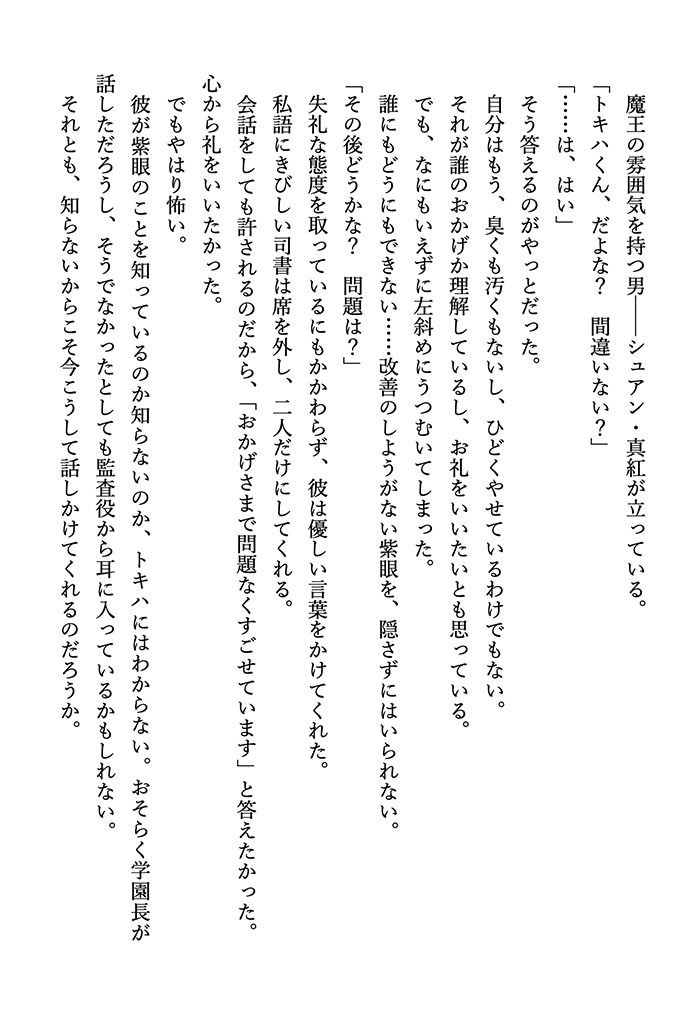 魔王の雰囲気を持つ男――シュアン・真紅が立っている。
「トキハくん、だよな？　間違いない？」
「……は、はい」
そう答えるのがやっとだった。
自分はもう、臭くも汚くもないし、ひどくやせているわけでもない。
それが誰のおかげか理解しているし、お礼をいいたいとも思っている。
でも、なにもいえずに左斜めにうつむいてしまった。
誰にもどうにもできない……改善のしようがない紫眼を、隠さずにはいられない。
「その後どうかな？　問題は？」
失礼な態度を取っているにもかかわらず、彼は優しい言葉をかけてくれた。
私語にきびしい司書は席を外し、二人だけにしてくれる。
会話をしても許されるのだから、「おかげさまで問題なくすごせています」と答えたかった。
心から礼をいいたかった。
でもやはり怖い。
彼が紫眼のことを知っているのか知らないのか、トキハにはわからない。おそらく学園長が
話しただろうし、そうでなかったとしても監査役から耳に入っているかもしれない。
それとも、知らないからこそ今こうして話しかけてくれるのだろうか。